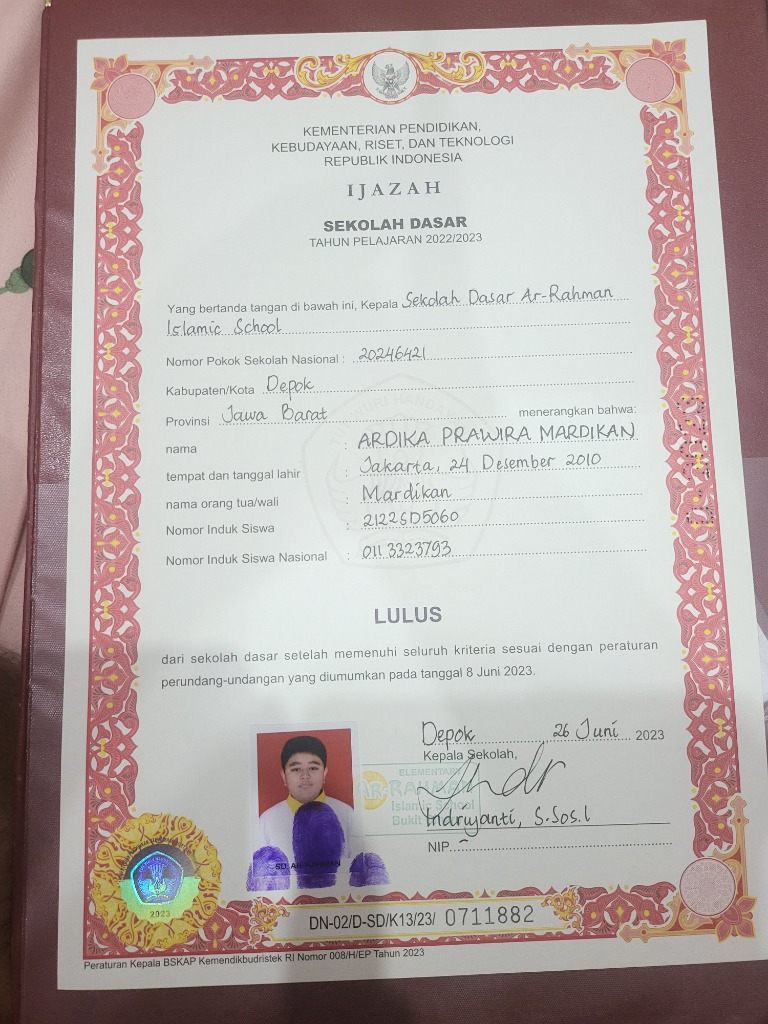 KEMENTERIAN PENDIDIKAN,
KEBUDAYAAN, RISET, DAN TEKNOLOGI
REPUBLIK INDONESIA
IJAZAH
SEKOLAH DASAR
TAHUN PELAJARAN 2022/2023
Yang bertanda tangan di bawah ini, Kepala Sekolah Dasar Ar-Rahman
Islamic School
Nomor Pokok Sekolah Nasional : 20246421
Kabupaten/Kota Depok
Provinsi Jawa Barat menerangkan bahwa:
nama : ARDIKA PRAWIRA MARDIKAN
tempat dan tanggal lahir : Jakarta, 24 Desember 2010
nama orang tua/wali : Mardikan
Nomor Induk Siswa : 2122SD5060
Nomor Induk Siswa Nasional : 0113323793
LULUS
dari sekolah dasar setelah memenuhi seluruh kriteria sesuai dengan peraturan
perundang-undangan yang diumumkan pada tanggal 8 Juni 2023.
Depok 26 Juni 2023
Kepala Sekolah,
ELEMENTARY
AR-RAHMAN
Islamic School
Bukit
Indriyanti, S.Sos.I
NIP. -
2023
DN-02/D-SD/K13/23/ 0711882
Peraturan Kepala BSKAP Kemendikbudristek RI Nomor 008/H/EP Tahun 2023